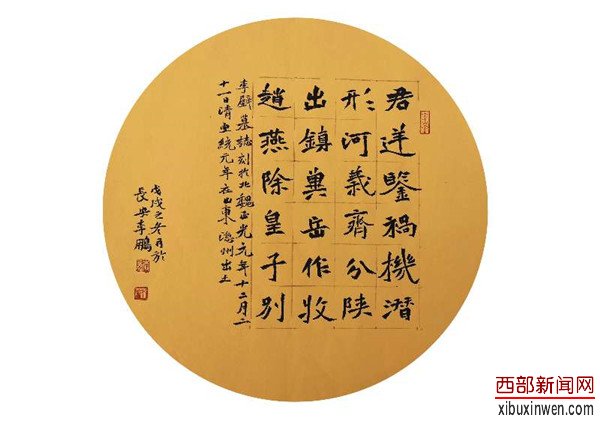 君逆鑒禍機潛
形河義齊分陝
出鎮冀岳作牧
趙燕除皇子別
李壁墓誌刻於北魏正光元年十二月二
十一日清宣統元年在山東德州出土
戊戌之冬月於
長安李鵬
西部新闻网
xibuxinwen.com